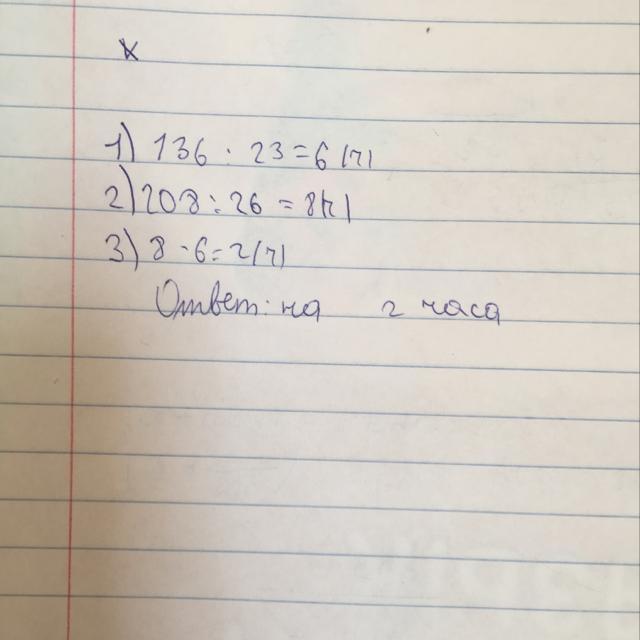 х
1) 136 : 23 = 6 (ч)
2) 208 : 26 = 8 (ч)
3) 8 - 6 = 2 (ч)
Ответ: на 2 часа